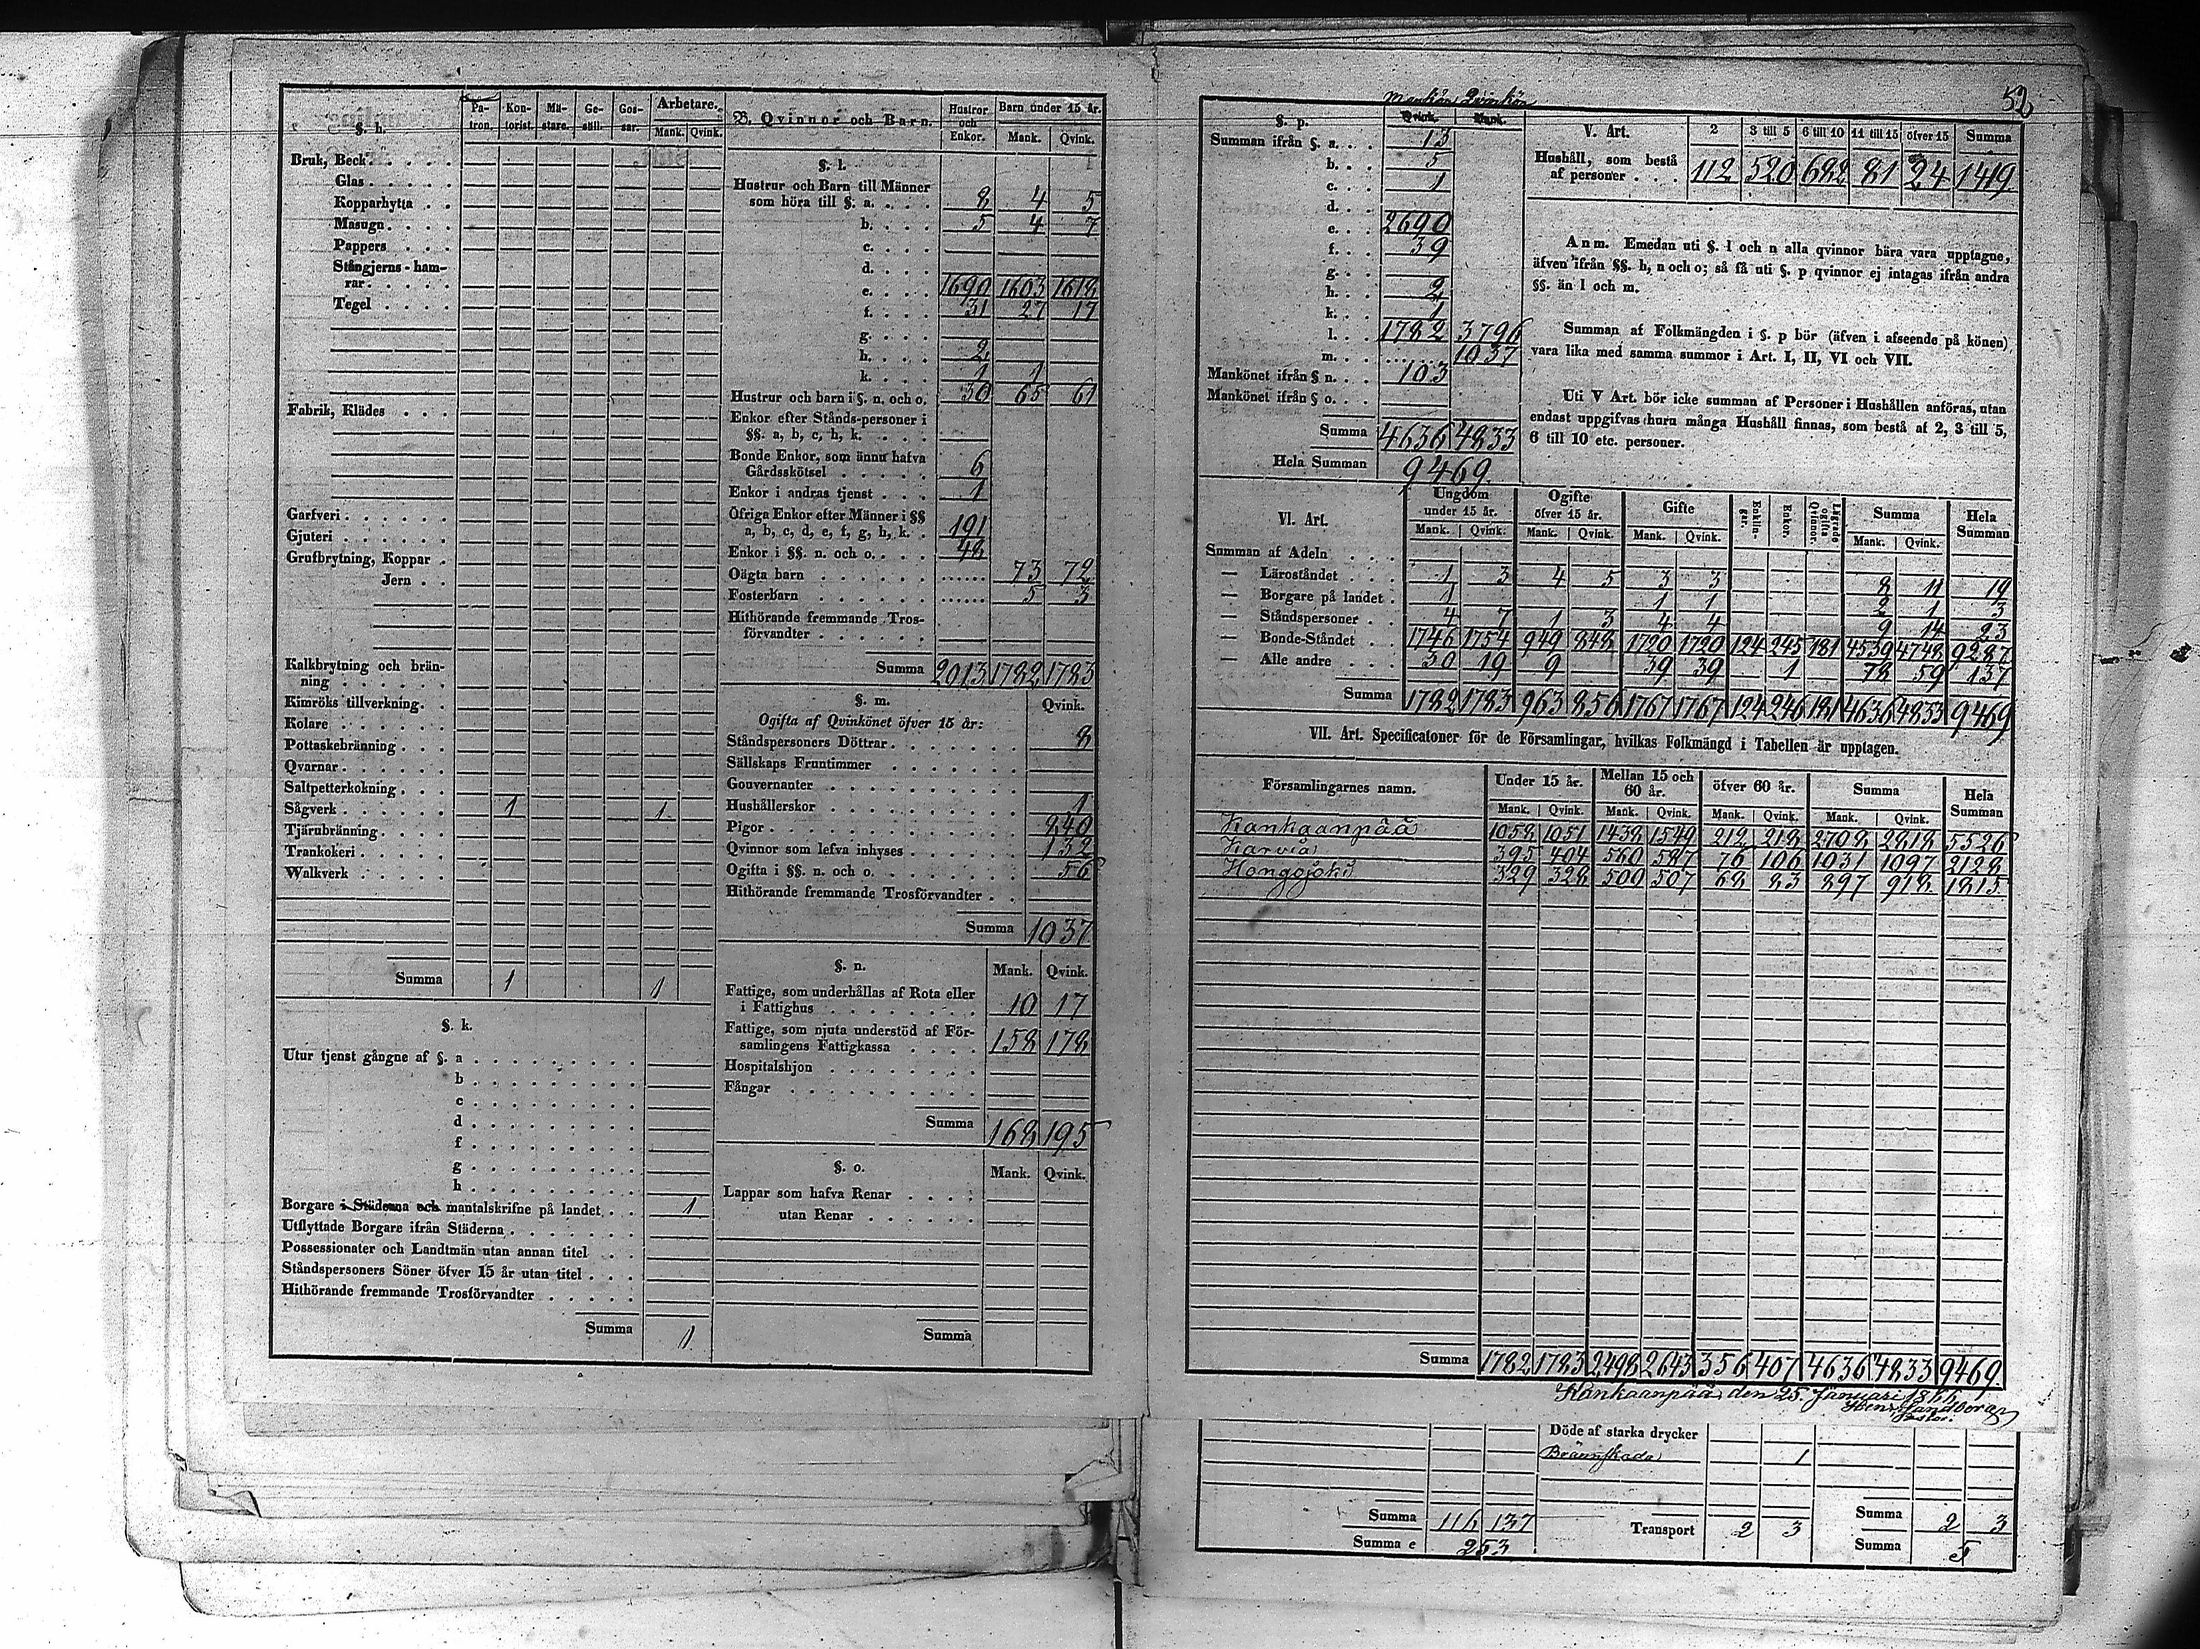 §. h. Pa- tron. Kon- torist. Mä- stare. Ge- säll. Gos- sar. Arbetare. Mank. Qvink.
Bruk, Beck
Glas
Kopparhytta
Masugn
Pappers
Stångjerns-ham-
rar
Tegel
Fabrik, Klädes
Garfveri
Gjuteri
Grufbrytning, Koppar
Jern
Kalkbrytning och brän-
ning
Kimröks tillverkning
Kolare
Pottaskebränning
Qvarnar
Saltpetterkokning
Sågverk 1 1
Tjärubränning
Trankokeri
Walkverk
Summa 1 1
§. k.
Utur tjenst gångne af §. a
b
c
d
f
g
h
Borgare i Städerna och mantalskrifne på landet 1
Utflyttade Borgare ifrån Städerna
Possessionater och Landtmän utan annan titel
Ståndspersoners Söner öfver 15 år utan titel
Hithörande fremmande Trosförvandter
Summa 1
B. Qvinnor och Barn. Hustror och Enkor. Barn under 15 år. Mank. Qvink.
§. l.
Hustrur och Barn till Männer
som höra till §. a. 8 4 5
b. 5 4 7
c.
d.
e. 1690 1603 1618
f. 31 27 17
g.
h. 2
k. 1 1
Hustrur och barn i §. n, och o. 30 65 61
Enkor efter Stånds-personer i
§§. a, b, c, h, k.
Bonde Enkor, som ännu hafva
Gårdsskötsel 6
Enkor i andras tjenst 1
Öfriga Enkor efter Männer i §§
a, b, c, d, e, f, g, h, k. 191
Enkor i §§. n. och o. 48
Oägta barn 73 72
Fosterbarn 5 3
Hithörande fremmande Tros-
förvandter
Summa 2013 1782 1783
§. m. Qvink.
Ogifta af Qvinkönet öfver 15 år:
Ståndspersoners Döttrar 8
Sällskaps Fruntimmer
Gouvernanter
Hushållerskor 1
Pigor 840
Qvinnor som lefva inhyses 132
Ogifta i §§. n. och o. 56
Hithörande fremmande Trosförvandter
Summa 1037
§. n. Mank. Qvink.
Fattige, som underhållas af Rota eller
i Fattighus 10 17
Fattige, som njuta understöd af För-
samlingens Fattigkassa 158 178
Hospitalshjon
Fångar
Summa 168 195
§. o. Mank. Qvink.
Lappar som hafva Renar
utan Renar
Summa
52
Mankön Qvinkön
§. p. Qvink. Mank.
Summan ifrån §. a. 13
b. 5
c. 1
d.
e. 2690
f. 39
g.
h. 2
k. 1
l. 1782 3796
m. 1037
Mankönet ifrån § n. 103
Mankönet ifrån § o.
Summa 4636 4833
Hela Summan 9469.
V. Art. 2 3 till 5 6 till 10 11 till 15 öfver 15 Summa
Hushåll, som bestå
af personer 112 520 682 81 24 1419.
Anm. Emedan uti §. l och n alla qvinnor bära vara upptagne,
äfven ifrån §§. h, n och o; så få uti §. p qvinnor ej intagas ifrån andra
§§. än l och m.
Summan af Folkmängden i §. p bör (äfven i afseende på könen)
vara lika med samma summor i Art. I, II, VI och VII.
Uti V Art. bör icke summan af Personer i Hushållen anföras, utan
endast uppgifvas huru många Hushåll finnas, som bestå af 2, 3 till 5,
6 till 10 etc. personer.
VI. Art. Ungdom under 15 år. Ogifte öfver 15 år. Gifte Enklin- gar. Enkor. Lägrade ogifta Qvinnor. Summa Hela Summan
Mank. Qvink. Mank. Qvink. Mank. Qvink. Mank. Qvink.
Summan af Adeln
— Läroståndet 1 3 4 5 3 3 8 11 19
— Borgare på landet 1 1 1 2 1 3
— Ståndspersoner 4 7 1 3 4 4 9 14 23
— Bonde-Ståndet 1746 1754 949 848 1720 1720 124 245 181 4539 4748 9287
— Alle andre 30 19 9 39 39 1 78 59 137
Summa 1782 1783 963 856 1767 1767 124 246 181 4636 4833 9469
VII. Art. Specificatoner för de Församlingar, hvilkas Folkmängd i Tabellen är upptagen.
Församlingarnes namn. Under 15 år. Mellan 15 och 60 år. öfver 60 år. Summa Hela Summan
Mank. Qvink. Mank. Qvink. Mank. Qvink. Mank. Qvink.
Kankaanpää 1058 1051 1438 1549 212 218 2708 2818 5526
Karvia 395 404 560 587 76 106 1031 1097 2128
Hongojoki 329 328 500 507 68 83 897 918 1815
Summa 1782 1783 2498 2643 356 407 4636 4833 9469.
Kankaanpää den 25 Januari
Pastor.
Döde af starka drycker
Brännskada 1
Summa 116 137 Transport 2 3 Summa 2 3
Summa e 253 Summa 5